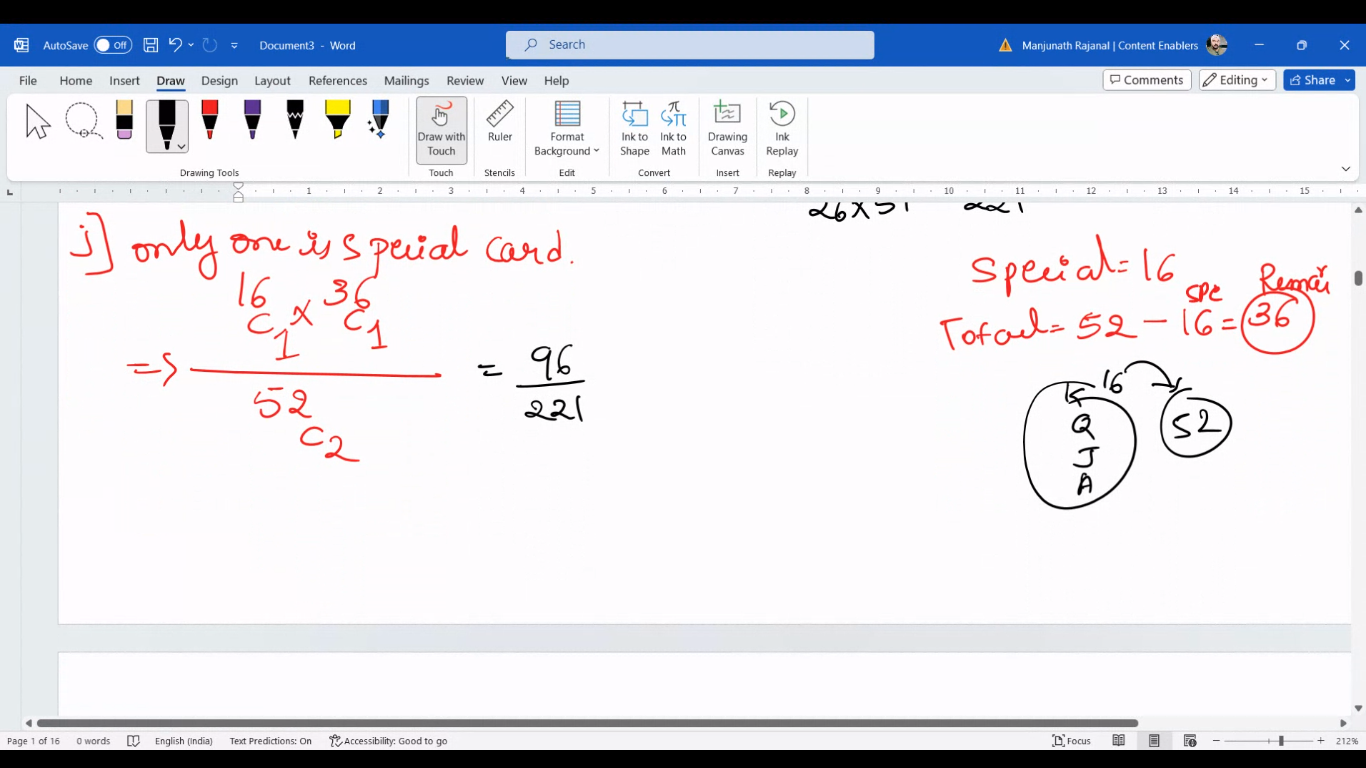 AutoSave Off Document3 - Word Search Manjunath Rajanal | Content Enablers
File Home Insert Draw Design Layout References Mailings Review View Help Comments Editing Share
Draw with Touch Ruler Format Background Ink to Shape Ink to Math Drawing Canvas Ink Replay
Drawing Tools Touch Stencils Edit Convert Insert Replay
1 2 3 4 5 6 7 8 9 10 11 12 13 14 15
26 x 51 221
j] only one is special card.
16 C 1 x 36 C 1
=>
52 C 2
= 96
221
Special = 16
spe
Total = 52 - 16 = 36
16
K
Q
J
A
52
Page 1 of 16 0 words English (India) Text Predictions: On Accessibility: Good to go Focus 212%